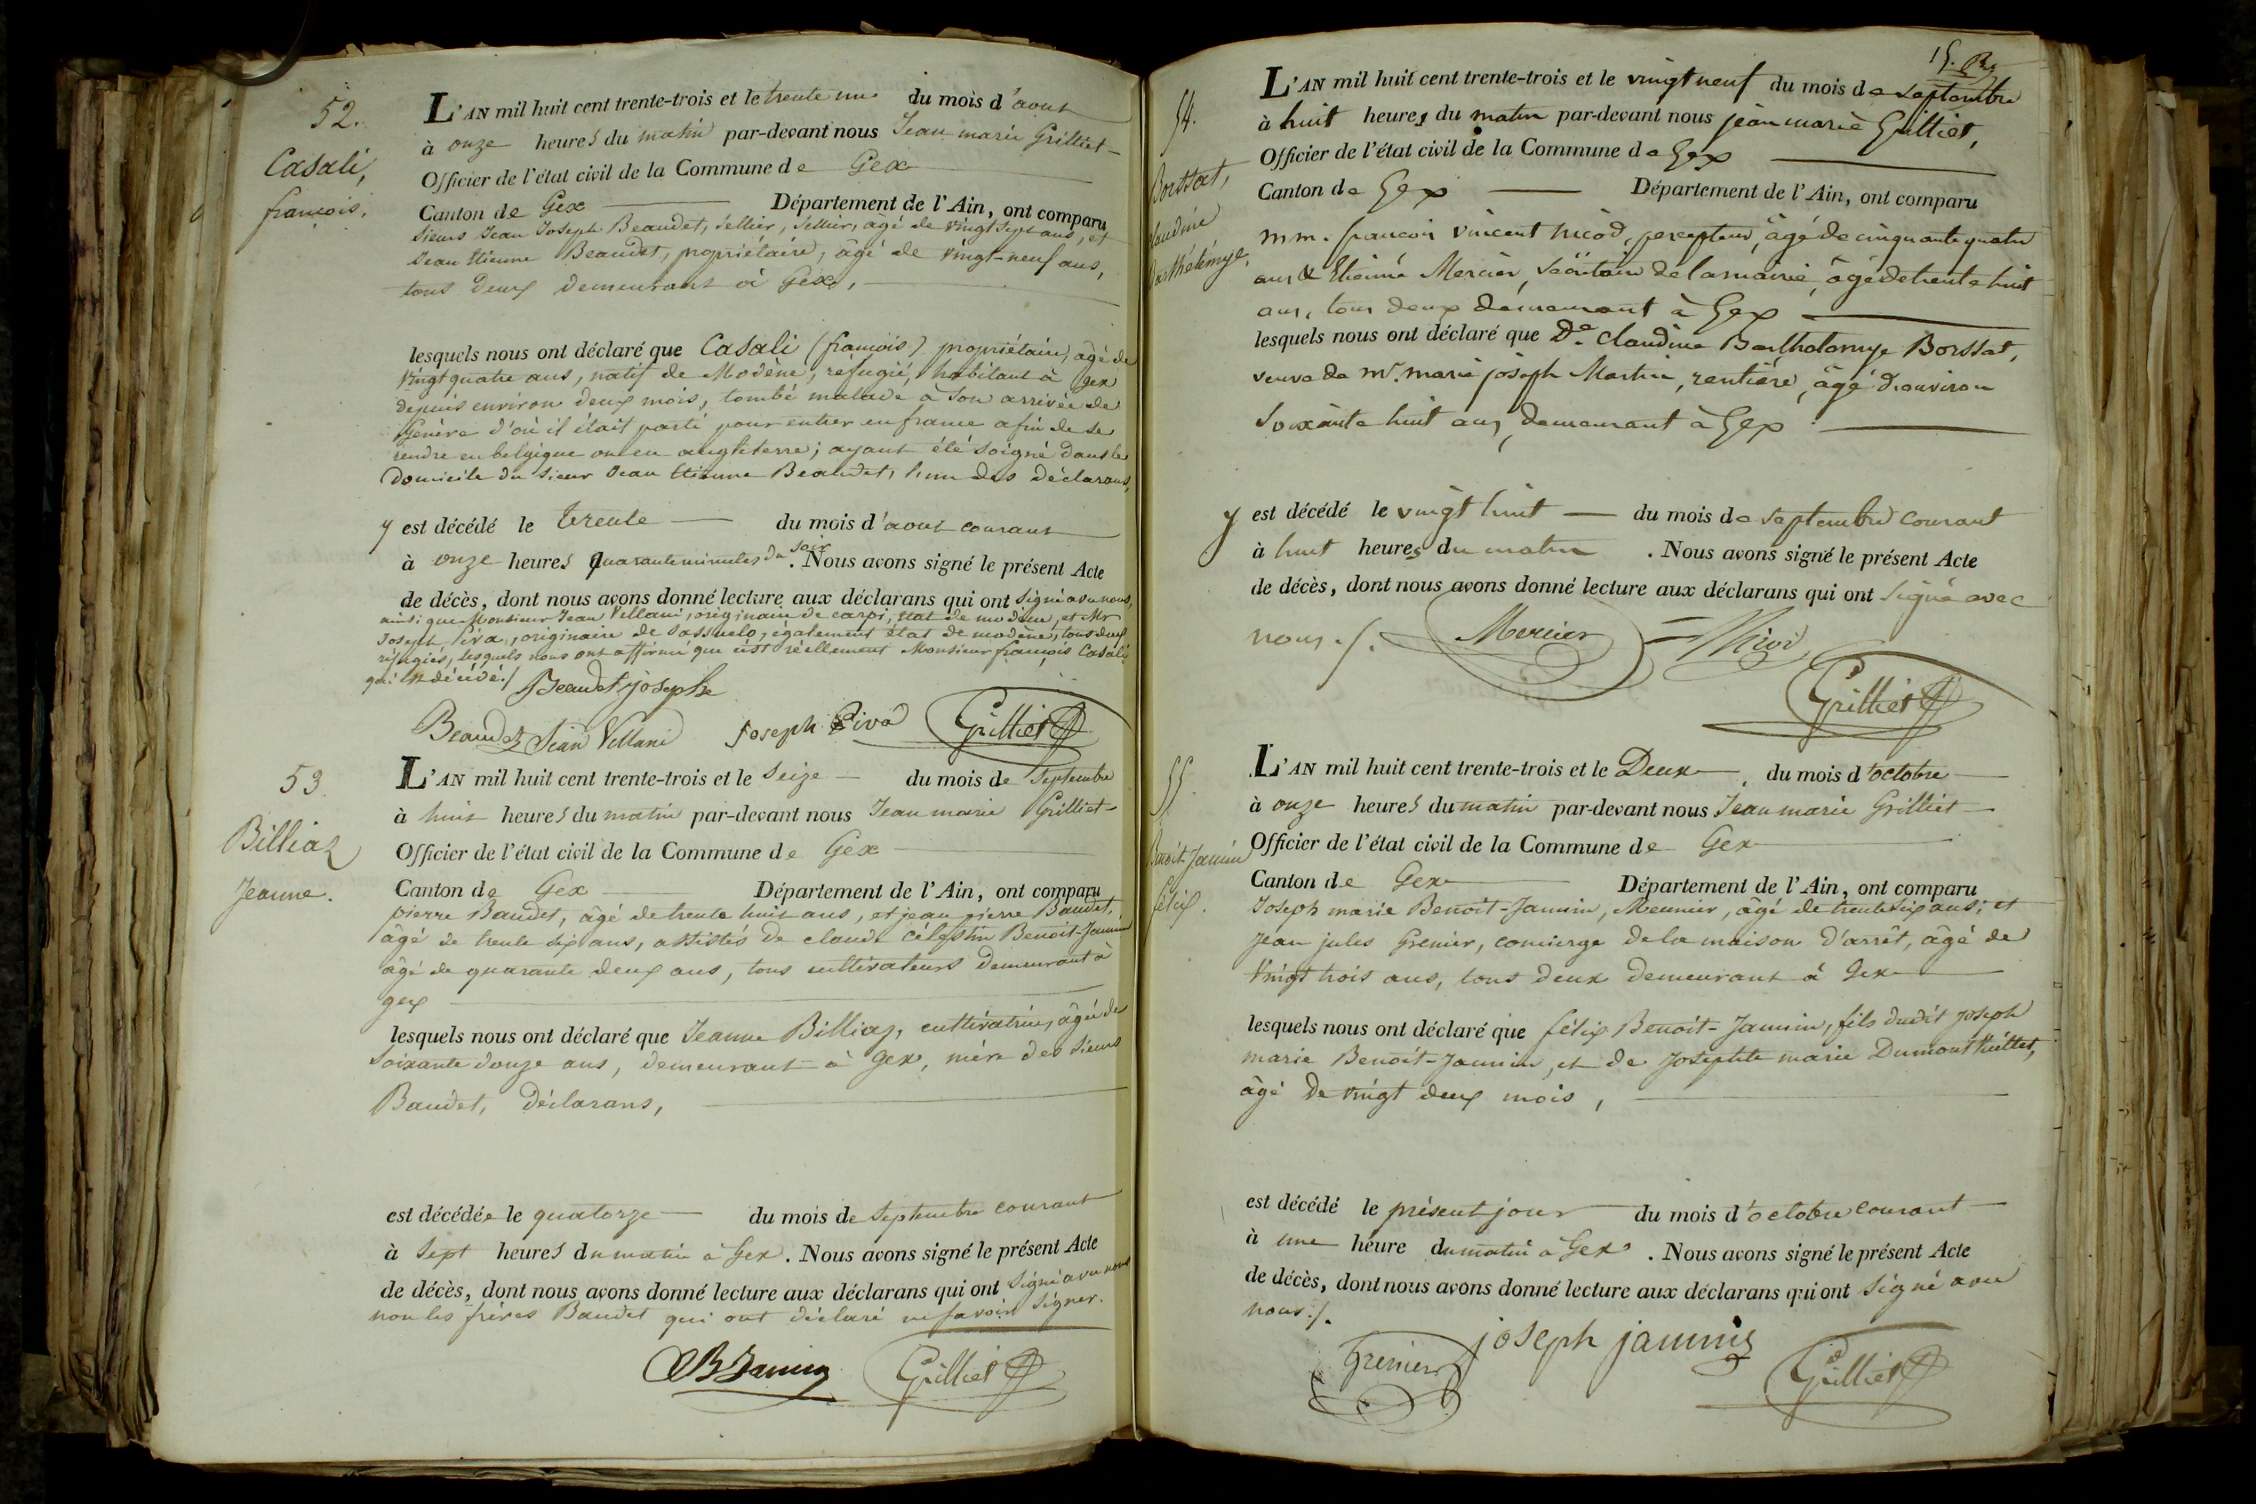 52.
Casali,
françois.
L'AN mil huit cent trente-trois et le trente un du mois d'aout
à onze heures du matin par-devant nous Jean marie Grilliet
Officier de l'état civil de la Commune de Gex
Canton de Gex Département de l'Ain, ont comparu
sieurs Jean Joseph Beaudet, sellier, sellier, âgé de vingt sept ans, et
Jean Etienne Beaudet, propriétaire, âgé de vingt-neuf ans,
tous deux demeurant à Gex,
lesquels nous ont déclaré que Casali (françois) propriétaire, âgé de
vingt quatre ans, natif de Modène, réfugié, habitant à Gex
depuis environ deux mois, tombé malade à son arrivée de
Genève d'où il était parti pour entrer en france afin de se
rendre en belgique ou en angleterre; ayant été soigné dans le
domicile du sieur Jean Etienne Beaudet, l'un des déclarans,
y est décédé le trente du mois d'aout courant
à onze heures quarante minutes du soir. Nous avons signé le présent Acte
de décès, dont nous avons donné lecture aux déclarans qui ont signé avec nous,
ainsi que Monsieur Jean Vellani, originaire de carpi, état de modène, et Mr
Joseph Piva, originaire de Sassuolo, également état de modène, tous deux
réfugiés, lesquels nous ont affirmé que c'est réellement Monsieur françois Casali
qui est décédé./ Beaudet joseph
Beaudet Jean Vellani Joseph Piva Grilliet
53
Billiaz
Jeanne.
L'AN mil huit cent trente-trois et le seize du mois de Septembre
à huit heures du matin par-devant nous Jean marie Grilliet
Officier de l'état civil de la Commune de Gex
Canton de Gex Département de l'Ain, ont comparu
pierre Baudet, âgé de trente huit ans, et jean pierre Baudet,
âgé de trente six ans, assistés de claude célestin Benoit-Jannin
âgé de quarante deux ans, tous cultivateurs demeurant à
gex
lesquels nous ont déclaré que Jeanne Billiaz, cultivatrice, âgée de
soixante douze ans, demeurant à Gex, mère des sieurs
Baudet, déclarans,
est décédée le quatorze du mois de septembre courant
à sept heures du matin à Gex. Nous avons signé le présent Acte
de décès, dont nous avons donné lecture aux déclarans qui ont signé avec nous
non les frères Baudet qui ont déclaré ne savoir signer.
Grilliet
15.
54.
Borssat,
Claudine
Barthélémye.
L'AN mil huit cent trente-trois et le vingt neuf du mois de septembre
à huit heures du matin par-devant nous jean marie Grilliet,
Officier de l'état civil de la Commune de Gex
Canton de Gex Département de l'Ain, ont comparu
m.m. francois vincent nicod, percepteur, âgé de cinquante quatre
ans & Etienne Mercier, secrétaire de la mairie, âgé de trente huit
ans, tous deux demeurant à Gex
lesquels nous ont déclaré que De. Claudine Bartholomye Borssat,
veuve de mr. marie joseph Martin, rentière, âgé d'environ
soixante huit ans, demeurant à Gex
y est décédé le vingt huit du mois de septembre courant
à huit heures du matin. Nous avons signé le présent Acte
de décès, dont nous avons donné lecture aux déclarans qui ont signé avec
nous./.
Mercier
Grilliet
55.
Benoit-Jannin
félix.
L'AN mil huit cent trente-trois et le Deux du mois d'octobre
à onze heures du matin par-devant nous Jean marie Grilliet
Officier de l'état civil de la Commune de Gex
Canton de Gex Département de l'Ain, ont comparu
Joseph marie Benoit-Jannin, Meunier, âgé de trente six ans; et
Jean jules Grenier, concierge de la maison d'arrêt, âgé de
vingt trois ans, tous deux demeurant à Gex
lesquels nous ont déclaré que félix Benoit-Jannin, fils dudit joseph
marie Benoit-Jannin, et de Josephte marie Dumont
âgé de vingt deux mois,
est décédé le présent jour du mois d'octobre courant
à une heure du matin à Gex. Nous avons signé le présent Acte
de décès, dont nous avons donné lecture aux déclarans qui ont signé avec
nous./.
Grenier joseph jannin Grilliet